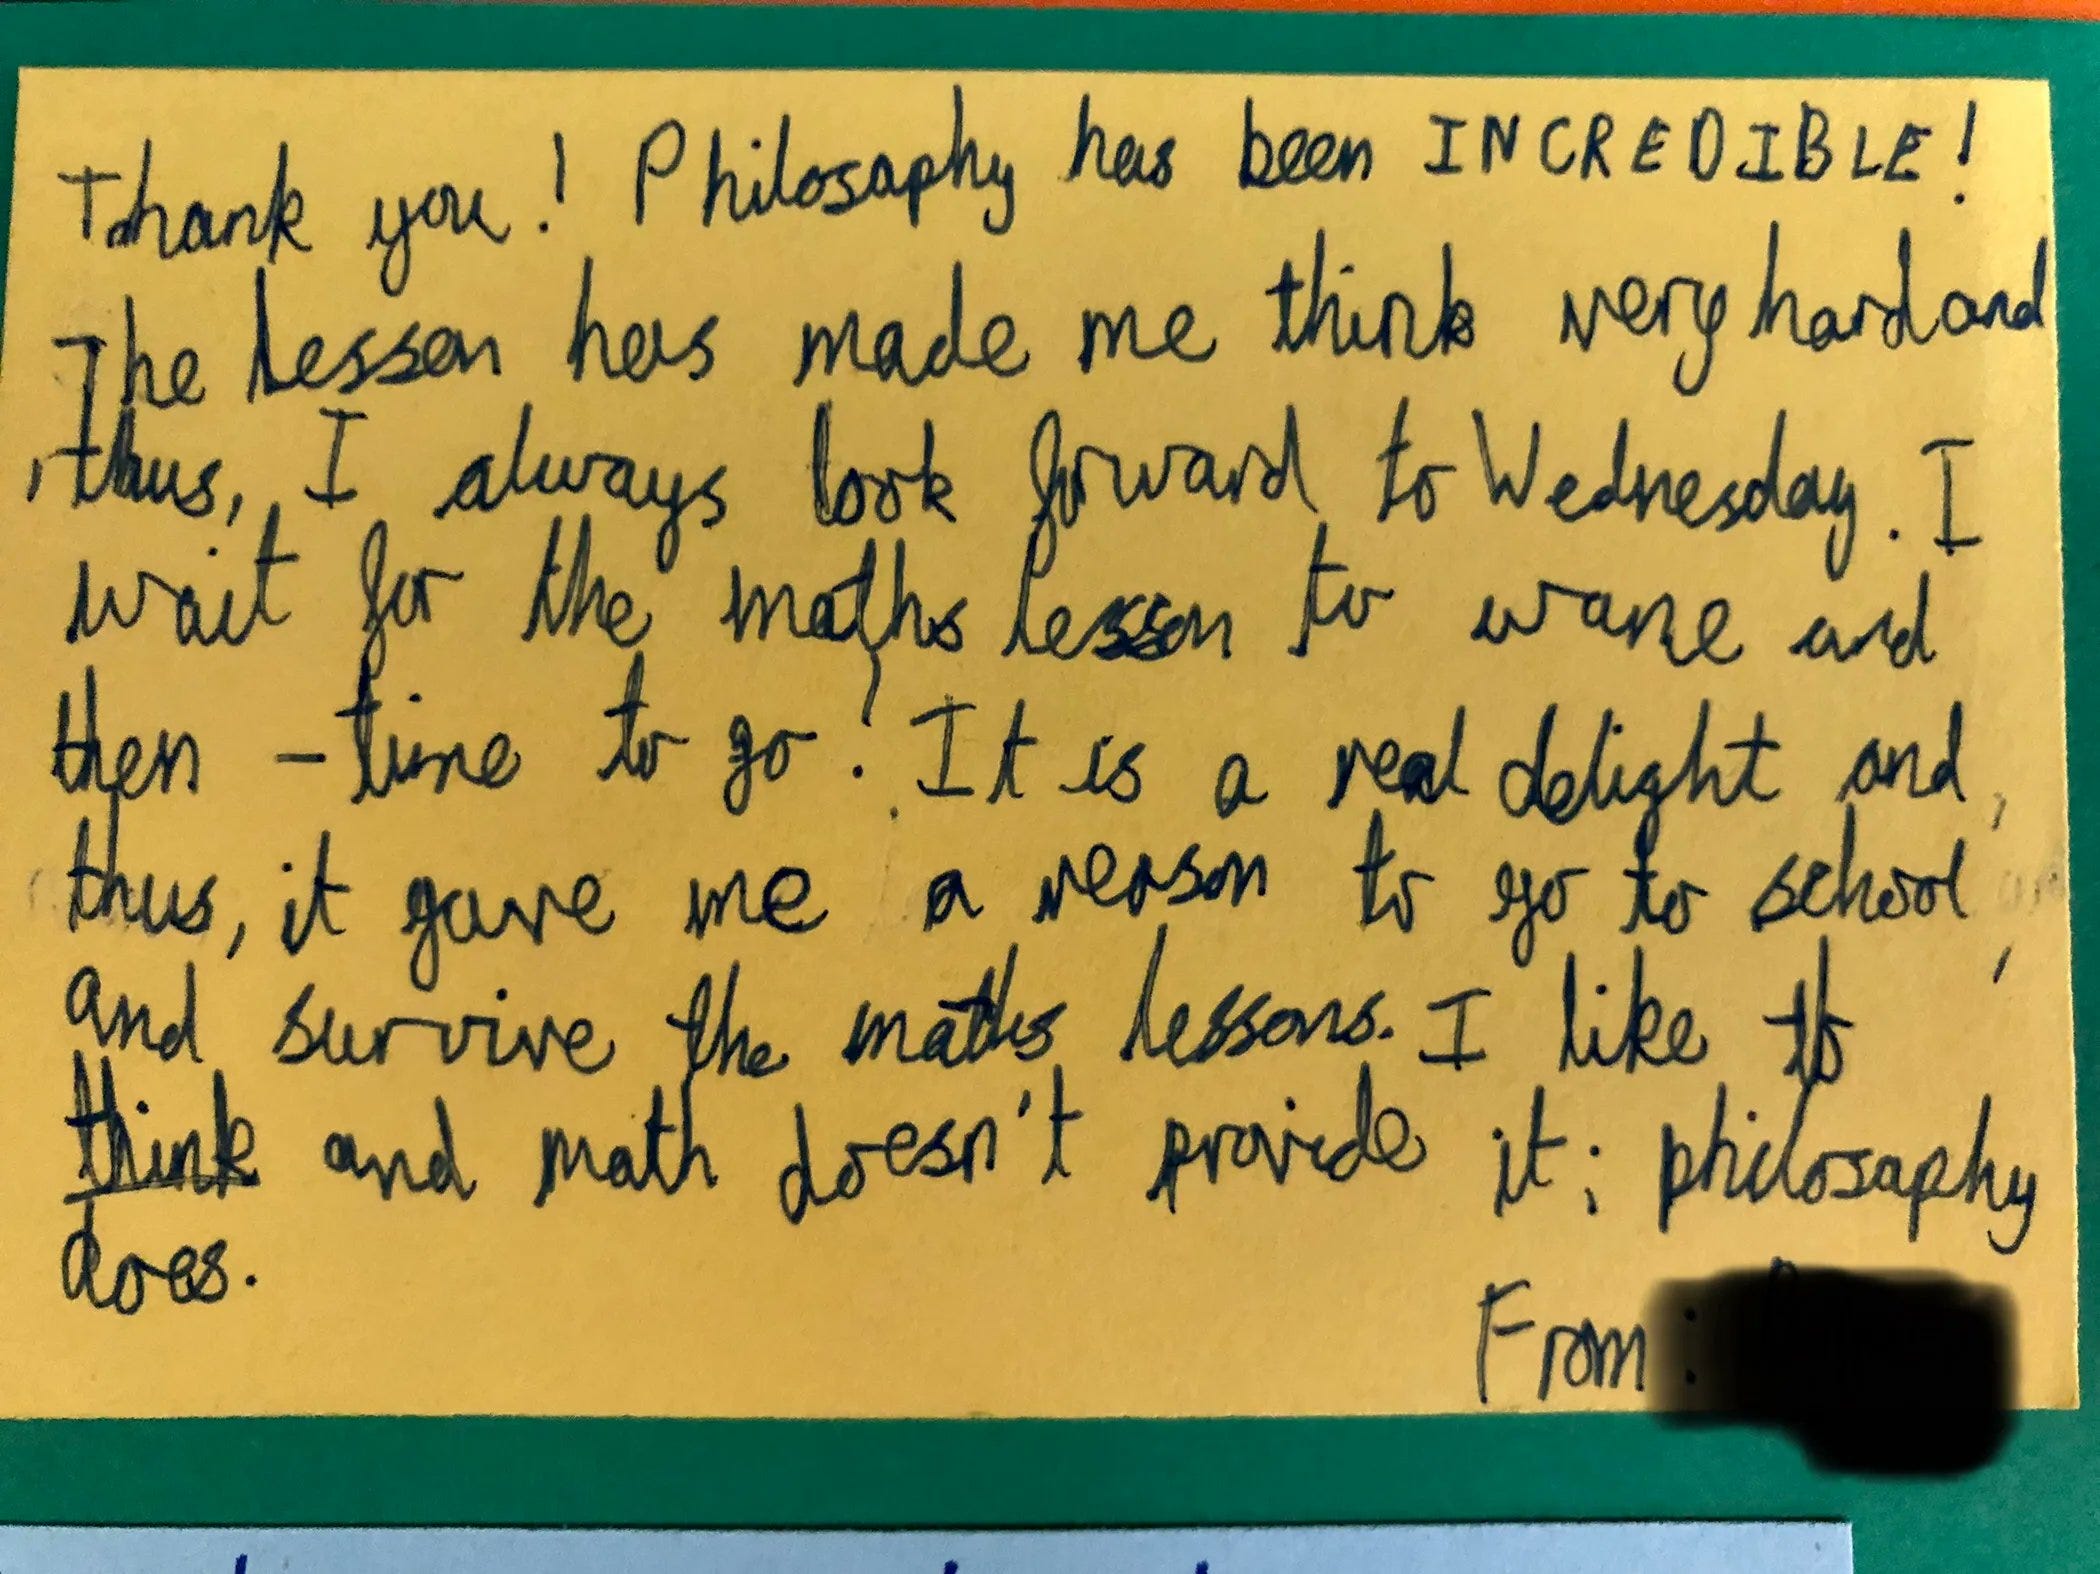 Thank you! Philosaphy has been INCREDIBLE!
The lesson has made me think very hard and
, thus, I always look forward to Wednesday. I
wait for the maths lesson to wane and
then - time to go! It is a real delight and,
thus, it gave me a reason to go to school,
and survive the maths lessons. I like to
think and math doesn't provide it; philosaphy
does.
From: